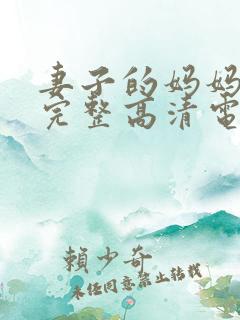 妻子的妈妈
完整高清电
赖少奇
未经同意禁止转载